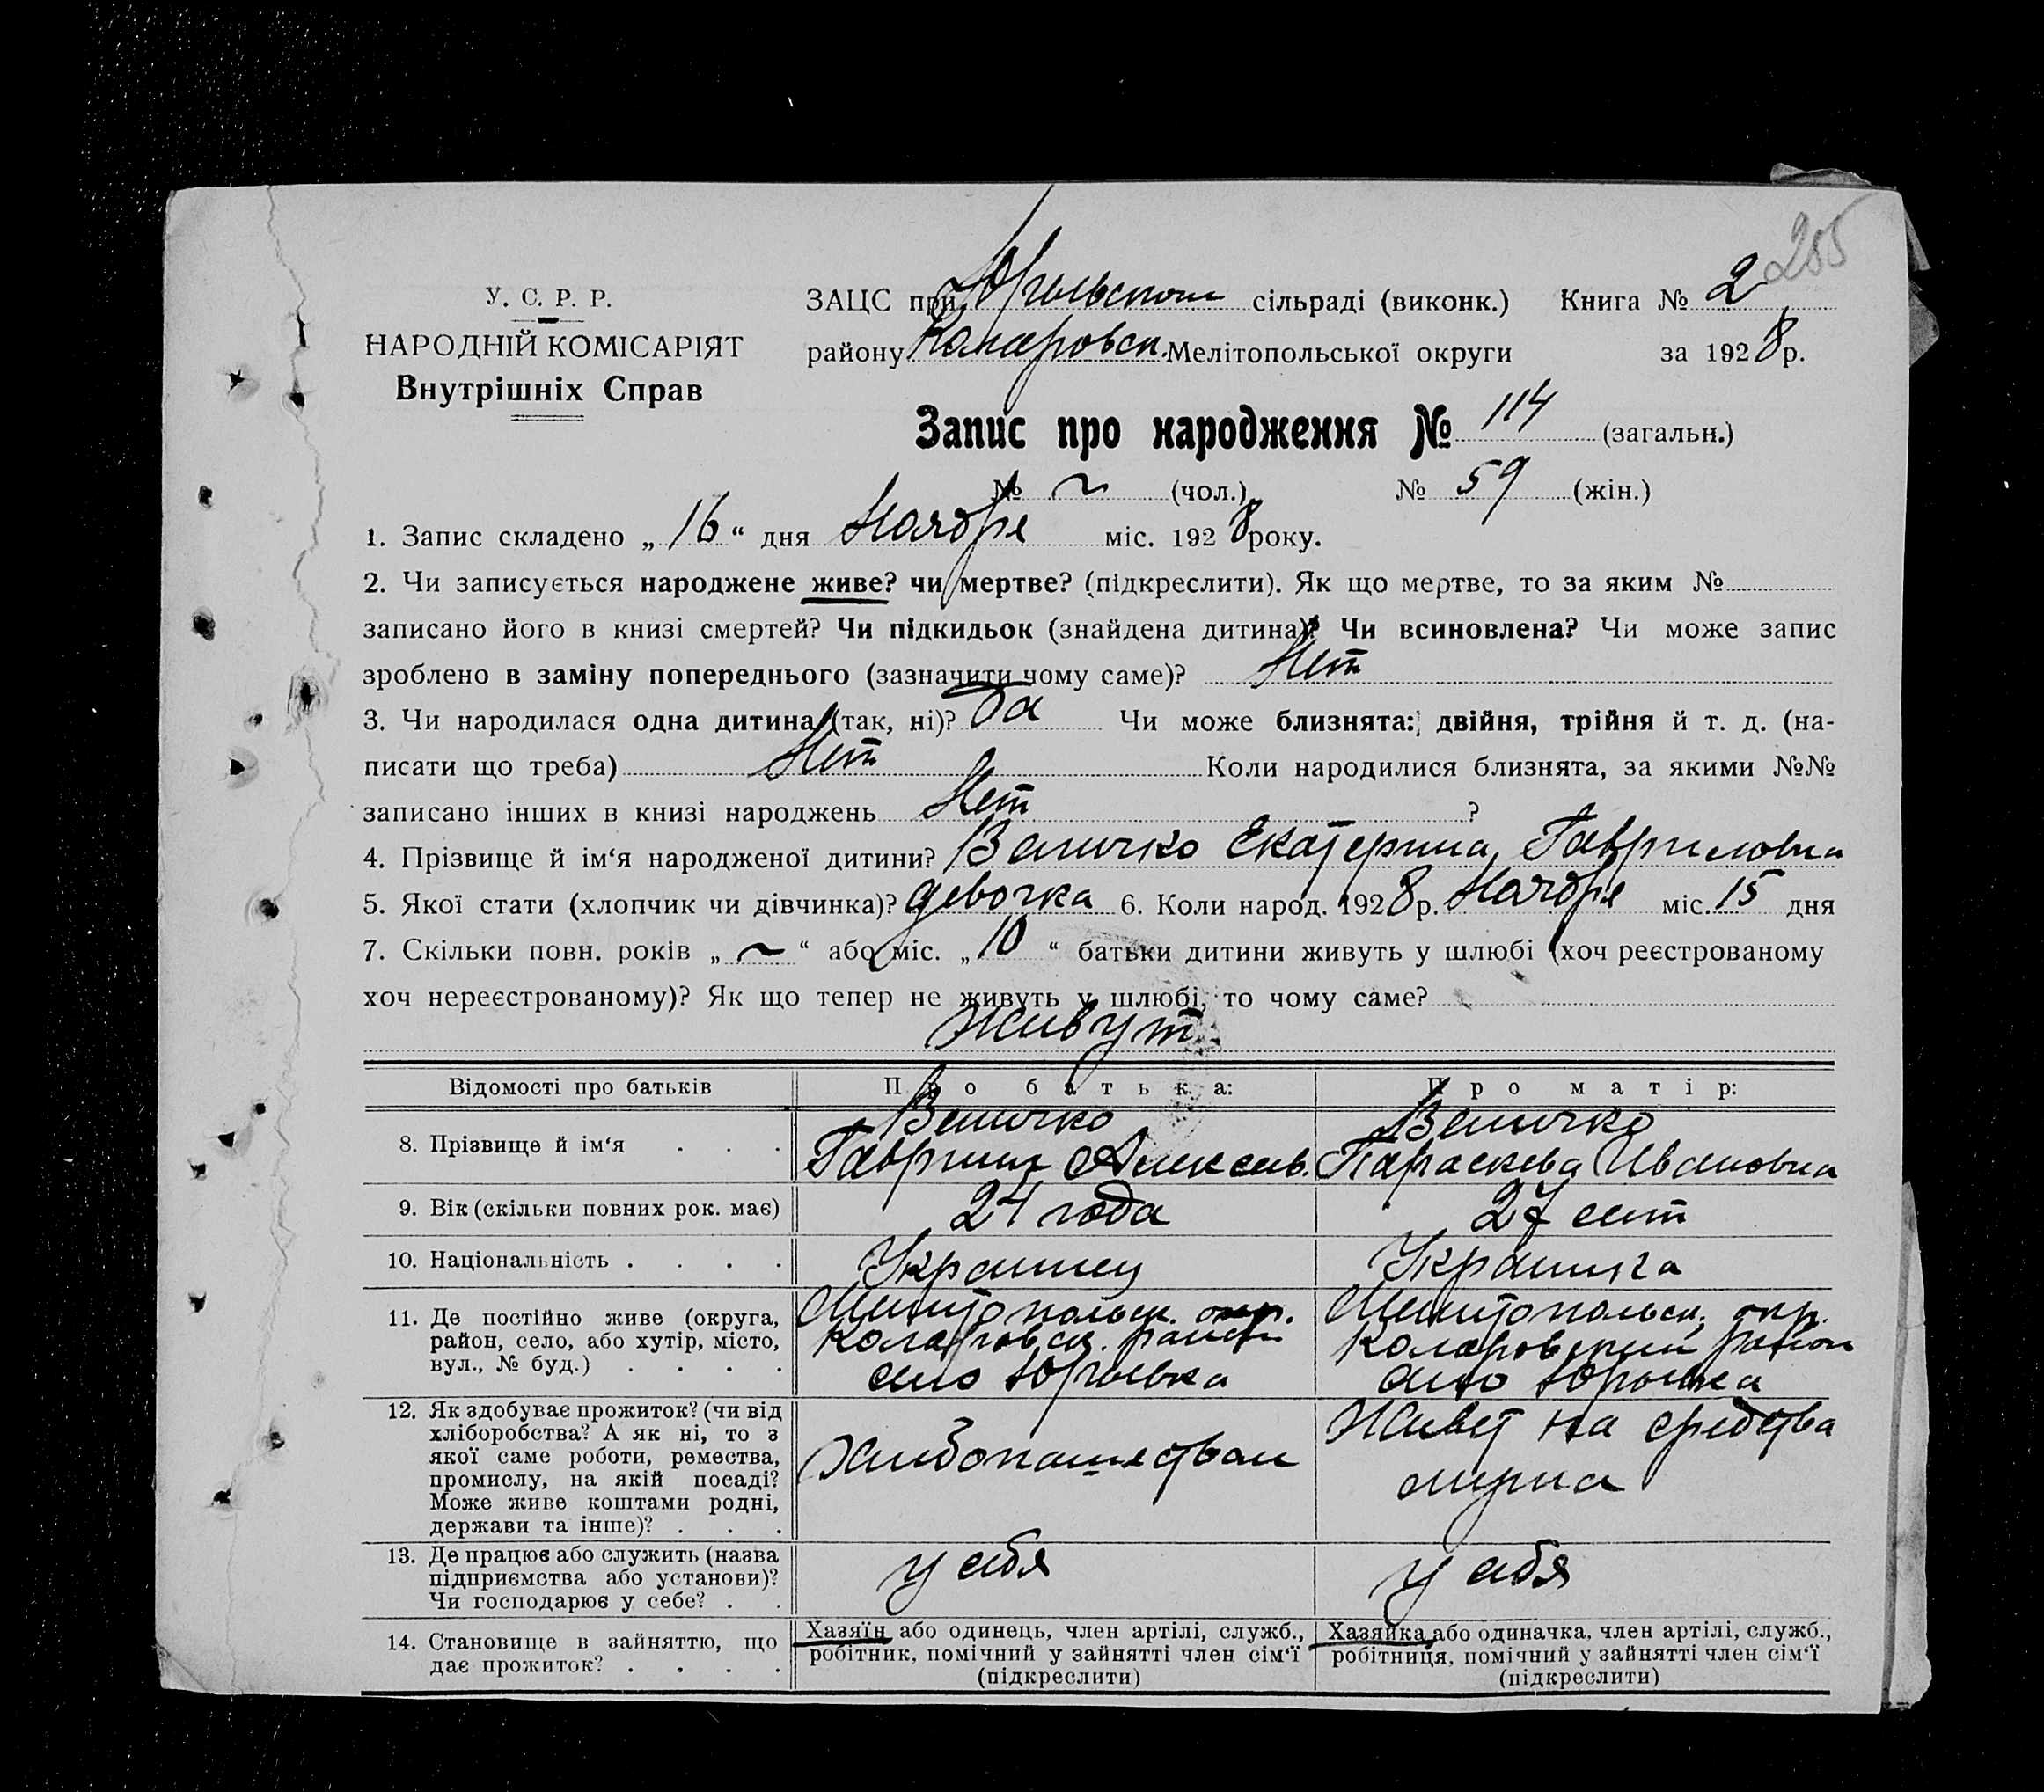 255
У. С. Р. Р.
НАРОДНІЙ КОМІСАРІЯТ
Внутрішніх Справ
ЗАЦС при Юрьевском сільраді (виконк.) Книга № 2
району Коларовск. Мелітопольської округи за 1928 р.
Запис про народження № 114 (загальн.)
№ ~ (чол.) № 59 (жін.)
1. Запис складено „16“ дня Ноября міс. 1928 року.
2. Чи записується народжене живе? чи мертве? (підкреслити). Як що мертве, то за яким №
записано його в книзі смертей? Чи підкидьок (знайдена дитина)? Чи всиновлена? Чи може запис
зроблено в заміну попереднього (зазначити чому саме)? Нет
3. Чи народилася одна дитина (так, ні)? Да Чи може близнята: двійня, трійня й т. д. (на-
писати що треба) Нет Коли народилися близнята, за якими №№
записано інших в книзі народжень Нет ?
4. Прізвище й ім‘я народженої дитини? Величко Екатерина Гавриловна
5. Якої стати (хлопчик чи дівчинка)? девочка 6. Коли народ. 1928 р. Ноября міс. 15 дня
7. Скільки повн. років „~“ або міс. „10“ батьки дитини живуть у шлюбі (хоч реєстрованому
хоч нереєстрованому)? Як що тепер не живуть у шлюбі, то чому саме?
Живут
Відомості про батьків Про батька: Про матір:
8. Прізвище й ім‘я . . . Величко Гавриил Алексеев. Величко Параскева Ивановна
9. Вік (скільки повних рок. має) 24 года 27 лет
10. Національність . . . . Украинец Украинка
11. Де постійно живе (округа, район, село, або хутір, місто, вул., № буд.) . . . . Мелитопольск. окр. Коларовск. район село Юрьевка Мелитопольск. окр. Коларовский район село Юрьевка
12. Як здобуває прожиток? (чи від хліборобства? А як ні, то з якої саме роботи, ремества, промислу, на якій посаді? Може живе коштами родні, держави та інше)? . . . Хлебопашеством Живет на средства мужа
13. Де працює або служить (назва підприємства або установи)? Чи господарює у себе? . . у себя у себя
14. Становище в зайняттю, що дає прожиток? . . . . Хазяїн або одинець, член артілі, служб., робітник, помічний у зайнятті член сім‘ї (підкреслити) Хазяйка або одиначка, член артілі, служб., робітниця, помічний у зайнятті член сім‘ї (підкреслити)